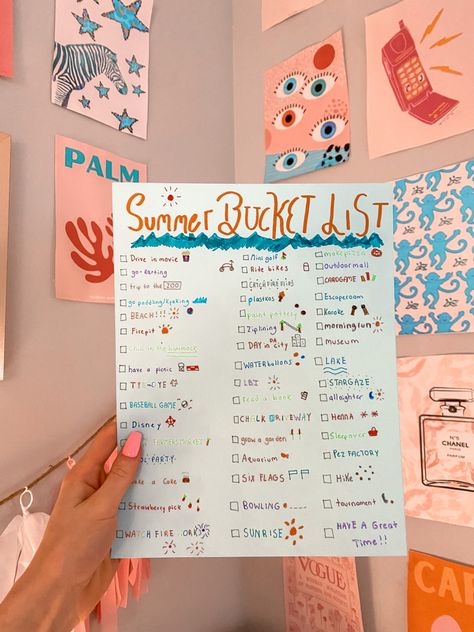 PALM
Summer BUCKET LIST
Drive in movie
go-karting
trip to the ZOO
go paddling/kyaking
BEACH!!!
Firepit
Chill in the hammock
have a picnic
TYE-DYE
BASEBALL GAME
Disney
FARMERS MARKET
POOL PARTY
Bake a Cake
Strawberry pick
WATCH FIREWORKS
Mini golf
Ride bikes
CATCH FIRE FLIES
paint pottery
Ziplining
DAY in DA City
WATER balloons
LBI
read a book
CHALK DRIVEWAY
grow a garden
Aquarium
SIX FLAGS
BOWLING
SUNRISE
make pizza
Outdoor mall
CARDGAME
Escaperoom
Karoke
morning run
museum
LAKE
STARGAZE
allnighter
Henna
Sleepover
PEZ FACTORY
Hike
tournament
HAVE A Great
Time!!
N°5
CHANEL
VOGUE
CAP